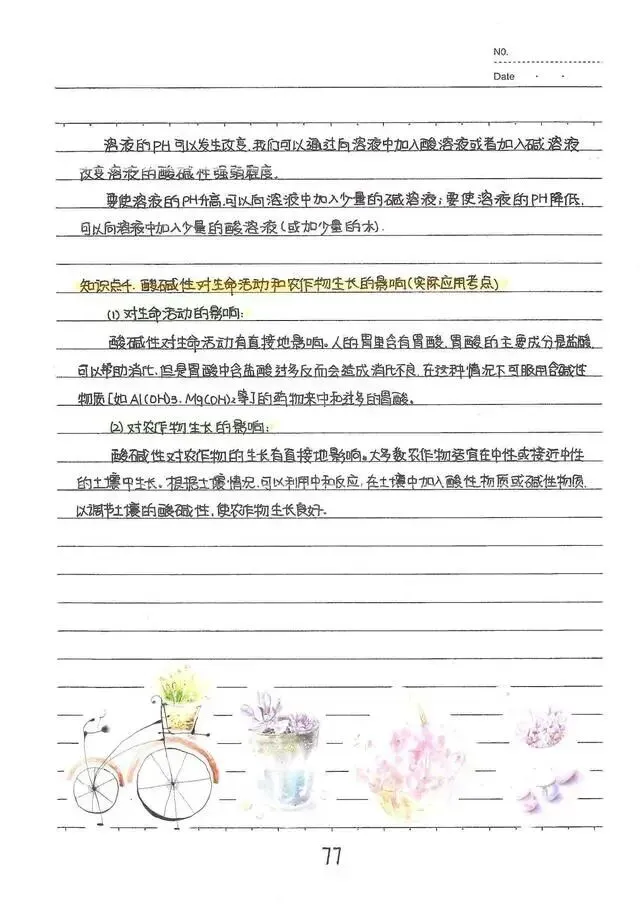 NO.
Date · ·
溶液的PH可以发生改变,我们可以通过向溶液中加入酸溶液或者加入碱溶液
改变溶液的酸碱性强弱程度.
要使溶液的PH升高,可以向溶液中加入少量的碱溶液;要使溶液的PH降低,
可以向溶液中加入少量的酸溶液(或加少量的水).
知识点4. 酸碱性对生命活动和农作物生长的影响(实际应用考点)
(1) 对生命活动的影响:
酸碱性对生命活动有直接地影响。人的胃里含有胃酸,胃酸的主要成分是盐酸,
可以帮助消化,但是胃酸中含盐酸过多反而会造成消化不良,在这种情况下可服用含碱性
物质[如Al(OH)3、Mg(OH)2等]的药物来中和过多的胃酸。
(2) 对农作物生长的影响:
酸碱性对农作物的生长有直接地影响。大多数农作物适宜在中性或接近中性
的土壤中生长。根据土壤情况,可以利用中和反应,在土壤中加入酸性物质或碱性物质,
以调节土壤的酸碱性,使农作物生长良好.
77